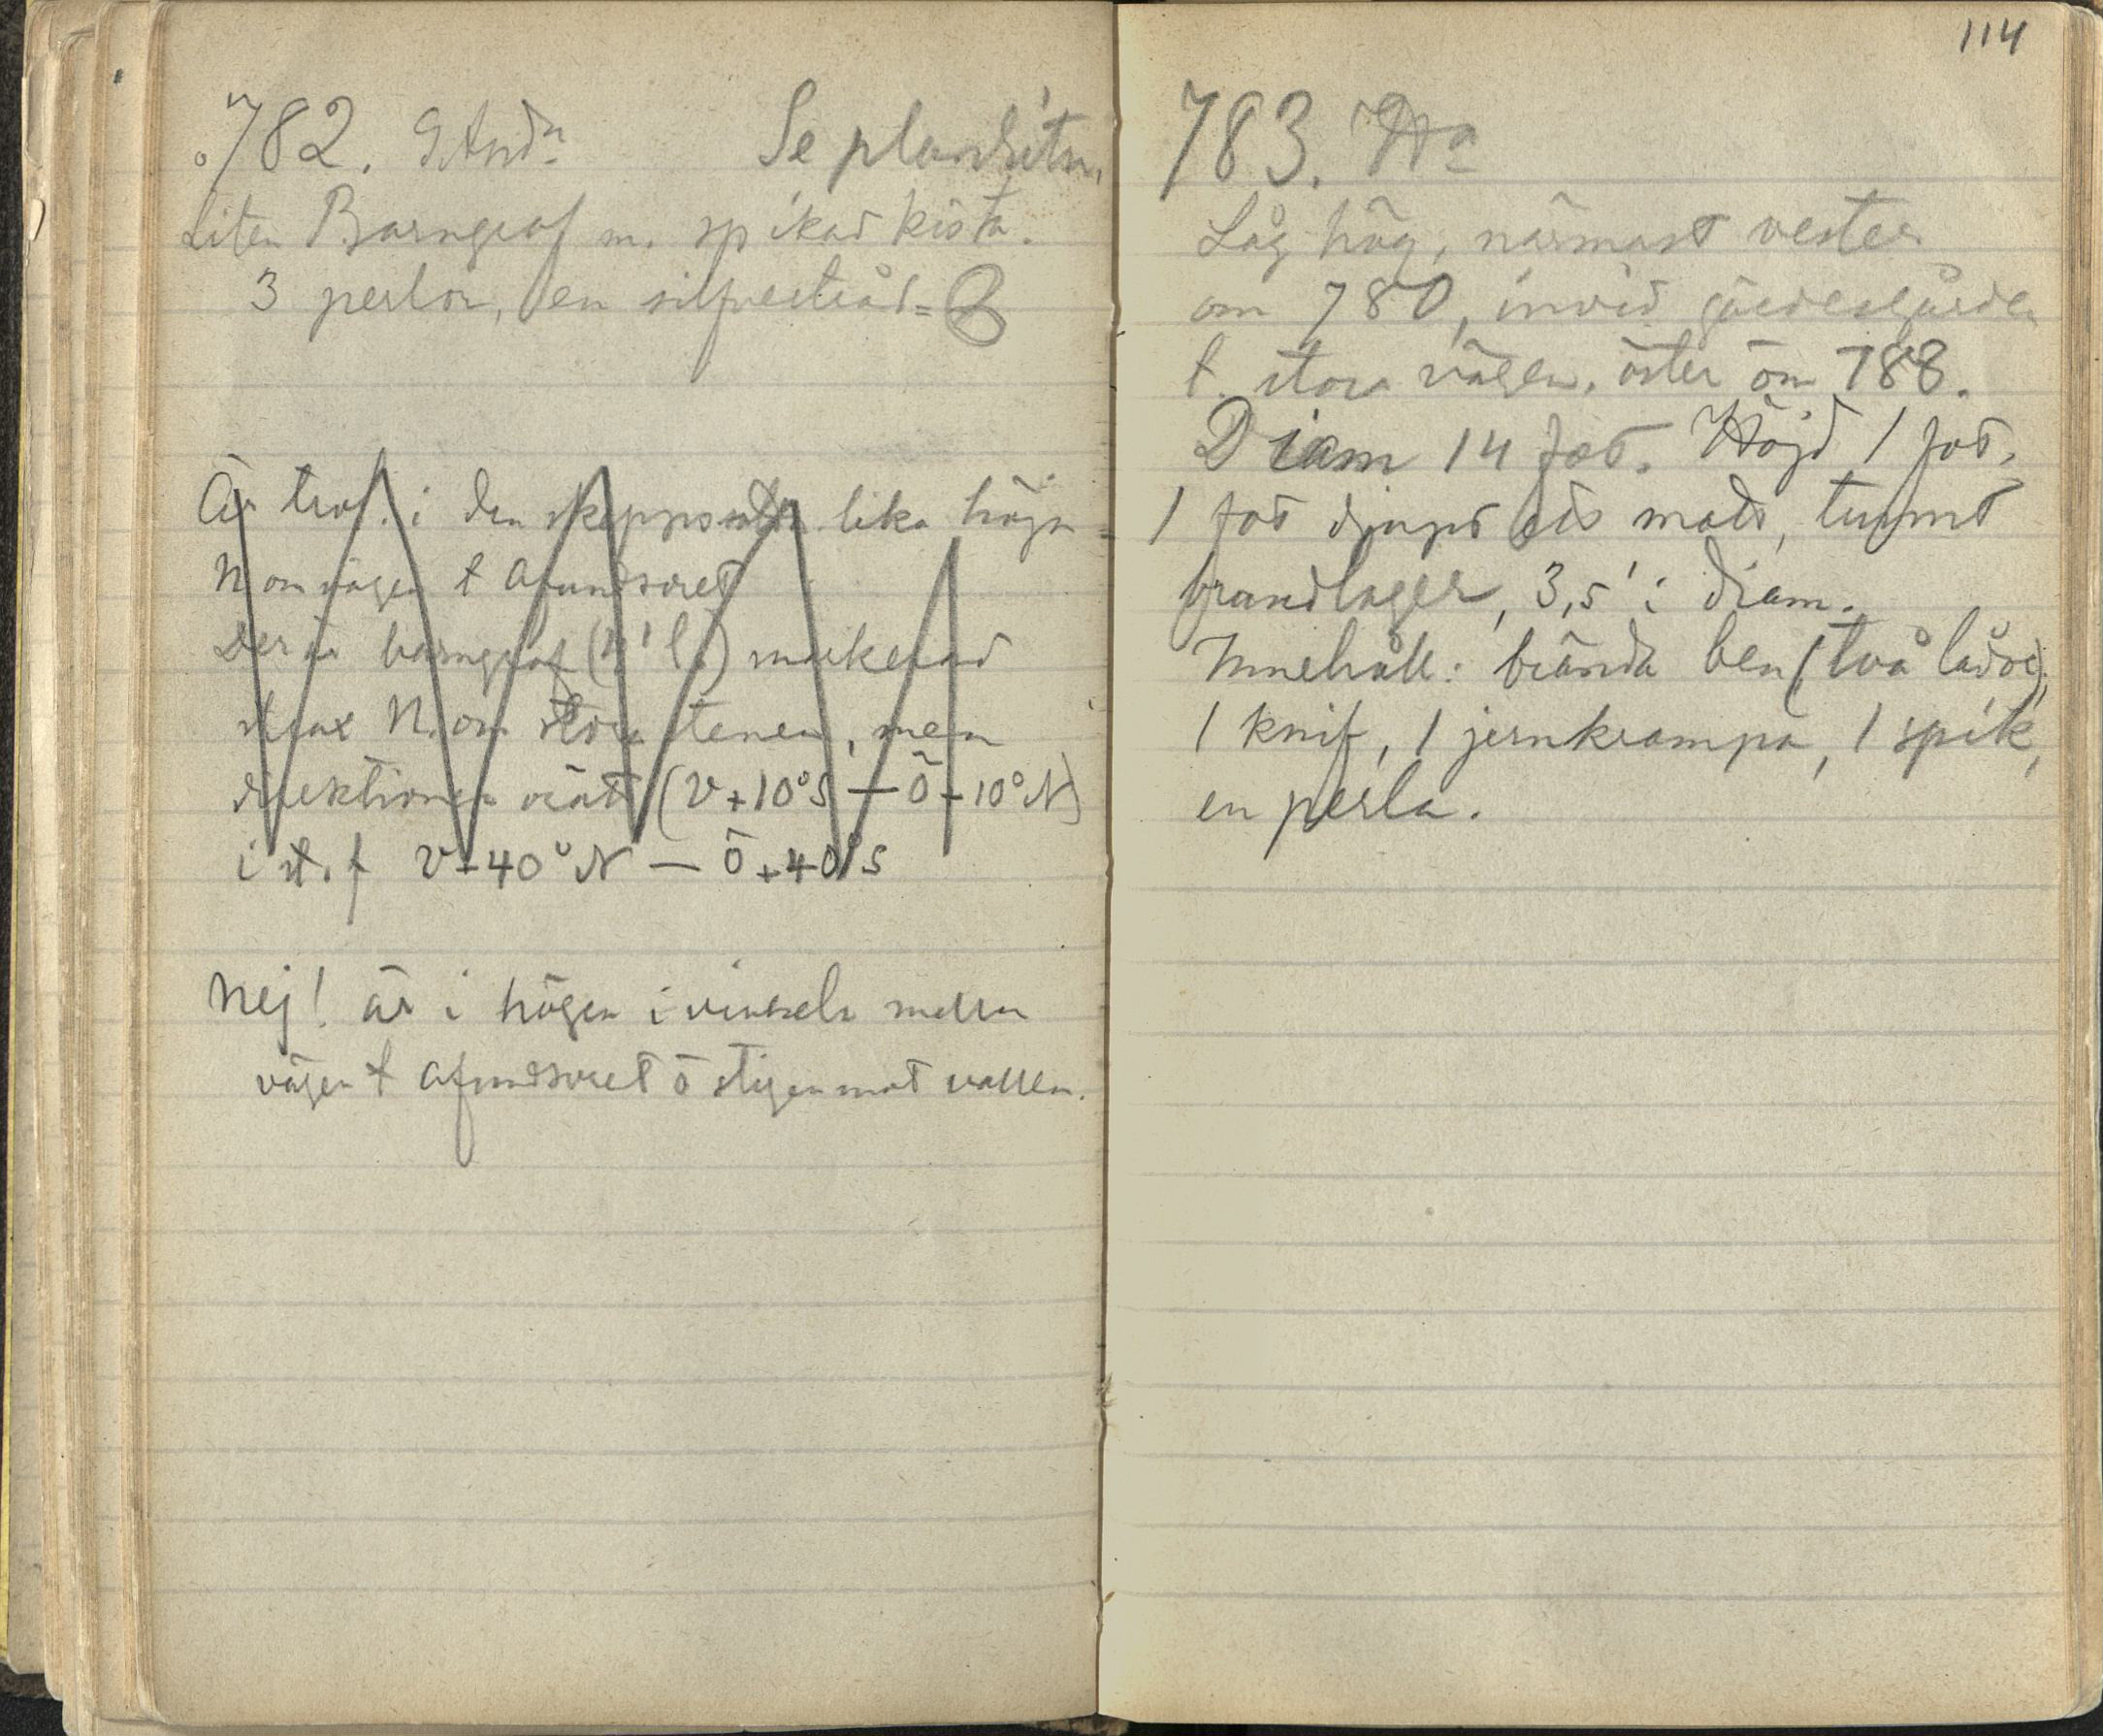 782. G And.n Se plankitn.
Liten Barngraf m. spikad kista.
3 perlor, en silfvertråd =
Är trol. i den skepps lika högn
N om vägen t Afundsoret
Der är barngraf markerad
strax N. om stora stenen, men
direktionen orätt (V+10°S — Ö+10°N)
i st. f V+40°N — Ö+40°S
Nej! är i högen i vinkeln mellan
vägen t Afundsoret o stigen mot vallen.
114
783. Ha
Låg hög, närmast vester
om 780, invid gärdesgården
t. stora vägen, öster om 788.
Diam 14 fot. Höjd 1 fot,
1 fot djupt ett matt, tunnt
brandlager, 3,5' i diam.
Innehåll: brända ben (två lådor),
1 knif, 1 jernkrampa, 1 spik,
en perla.